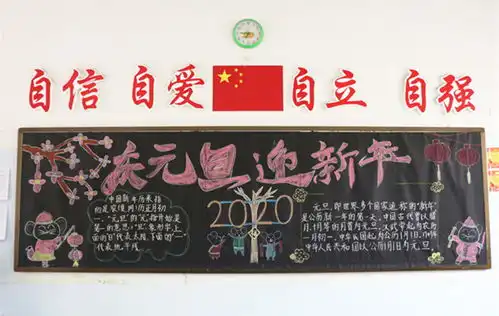 自信 自爱 自立 自强
庆元旦迎新年
中国新年历来指
的是农历正月初
一，“元旦”的“元”指开始，是
第一的意思；“旦”，象形字，上
面的“日”代表太阳，下面的“一”
代表地平线。
2020
元旦，即世界多个国家通称的“新年”
是公历新一年的第一天，中国古代曾以腊
月、十月等的月首为元旦，汉武帝起为农历
一月初一，中华民国起为公历1月1日，1949年
中华人民共和国以公历1月1日为元旦。